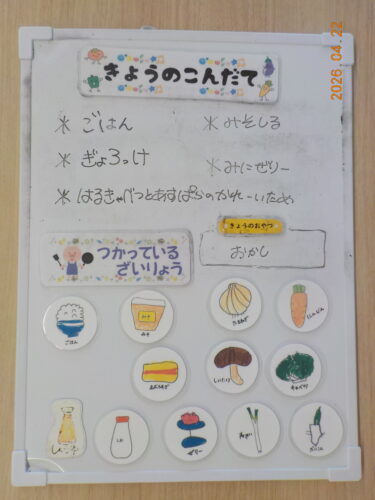 2026.04.22
きょうのこんだて
* ごはん
* みそしる
* ぎょろっけ
* みにぜりー
* はるきゃべつとあすぱらのかれーいため
きょうのおやつ
おかし
つかっている
ざいりょう
ごはん
みそ
みそ
たまねぎ
にんじん
あぶらあげ
しいたけ
キャベツ
しお
ゼリー
ねぎ
だいこん